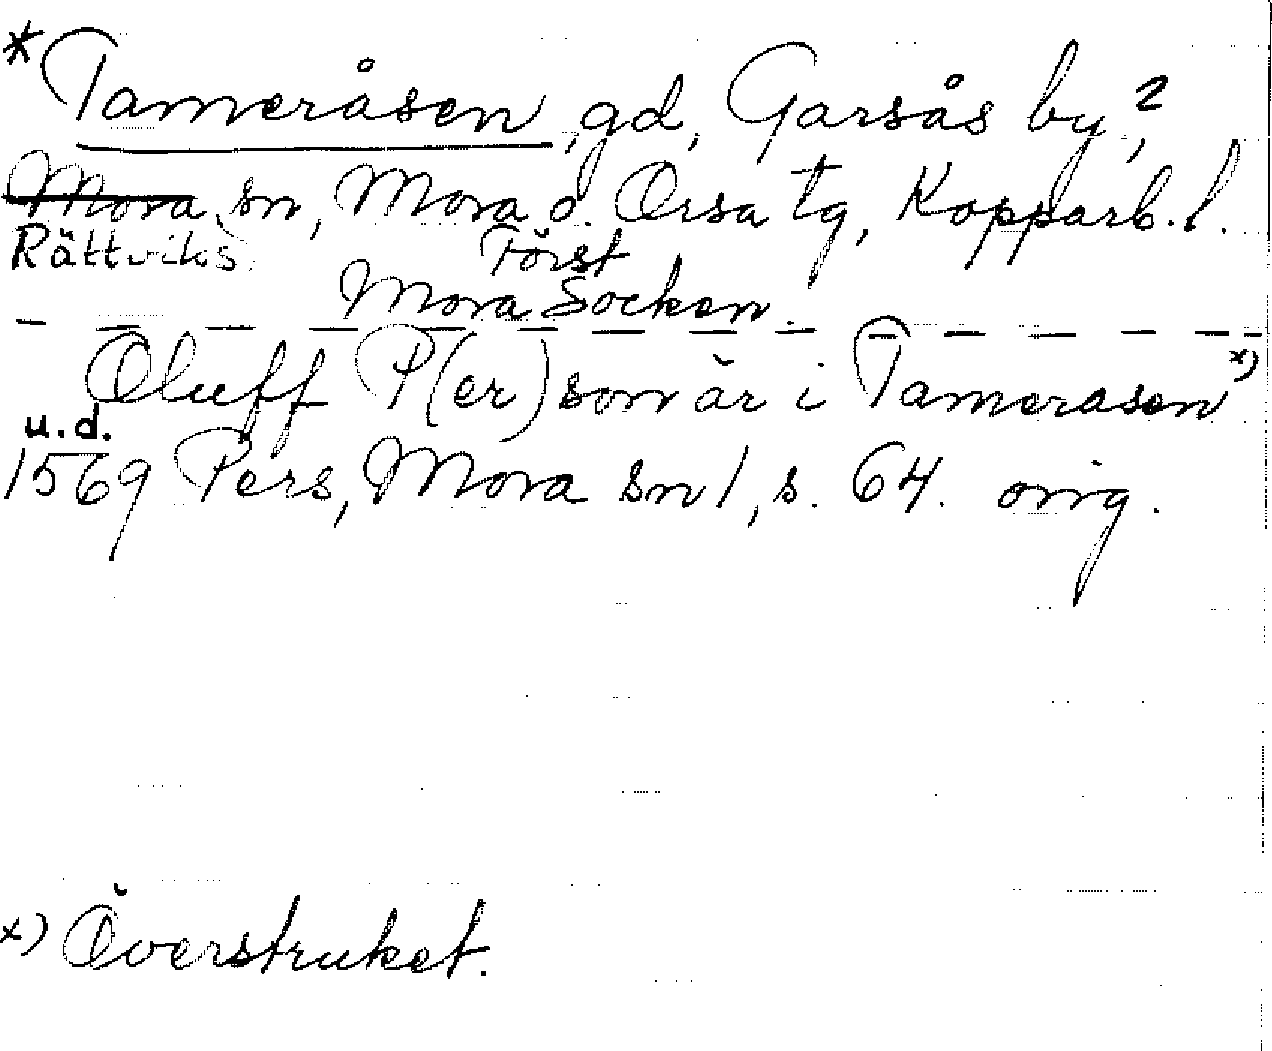 *Tameråsen, gd, Garsås by,?
Mora sn, Mora o. Orsa tg, Kopparb. l.
Rättviks Först
Mora Socken.
Oluff P(er)son är i Tamerasen x)
u.d.
1569 Pers, Mora sn 1, s. 64. orig.
x) Överstruket.